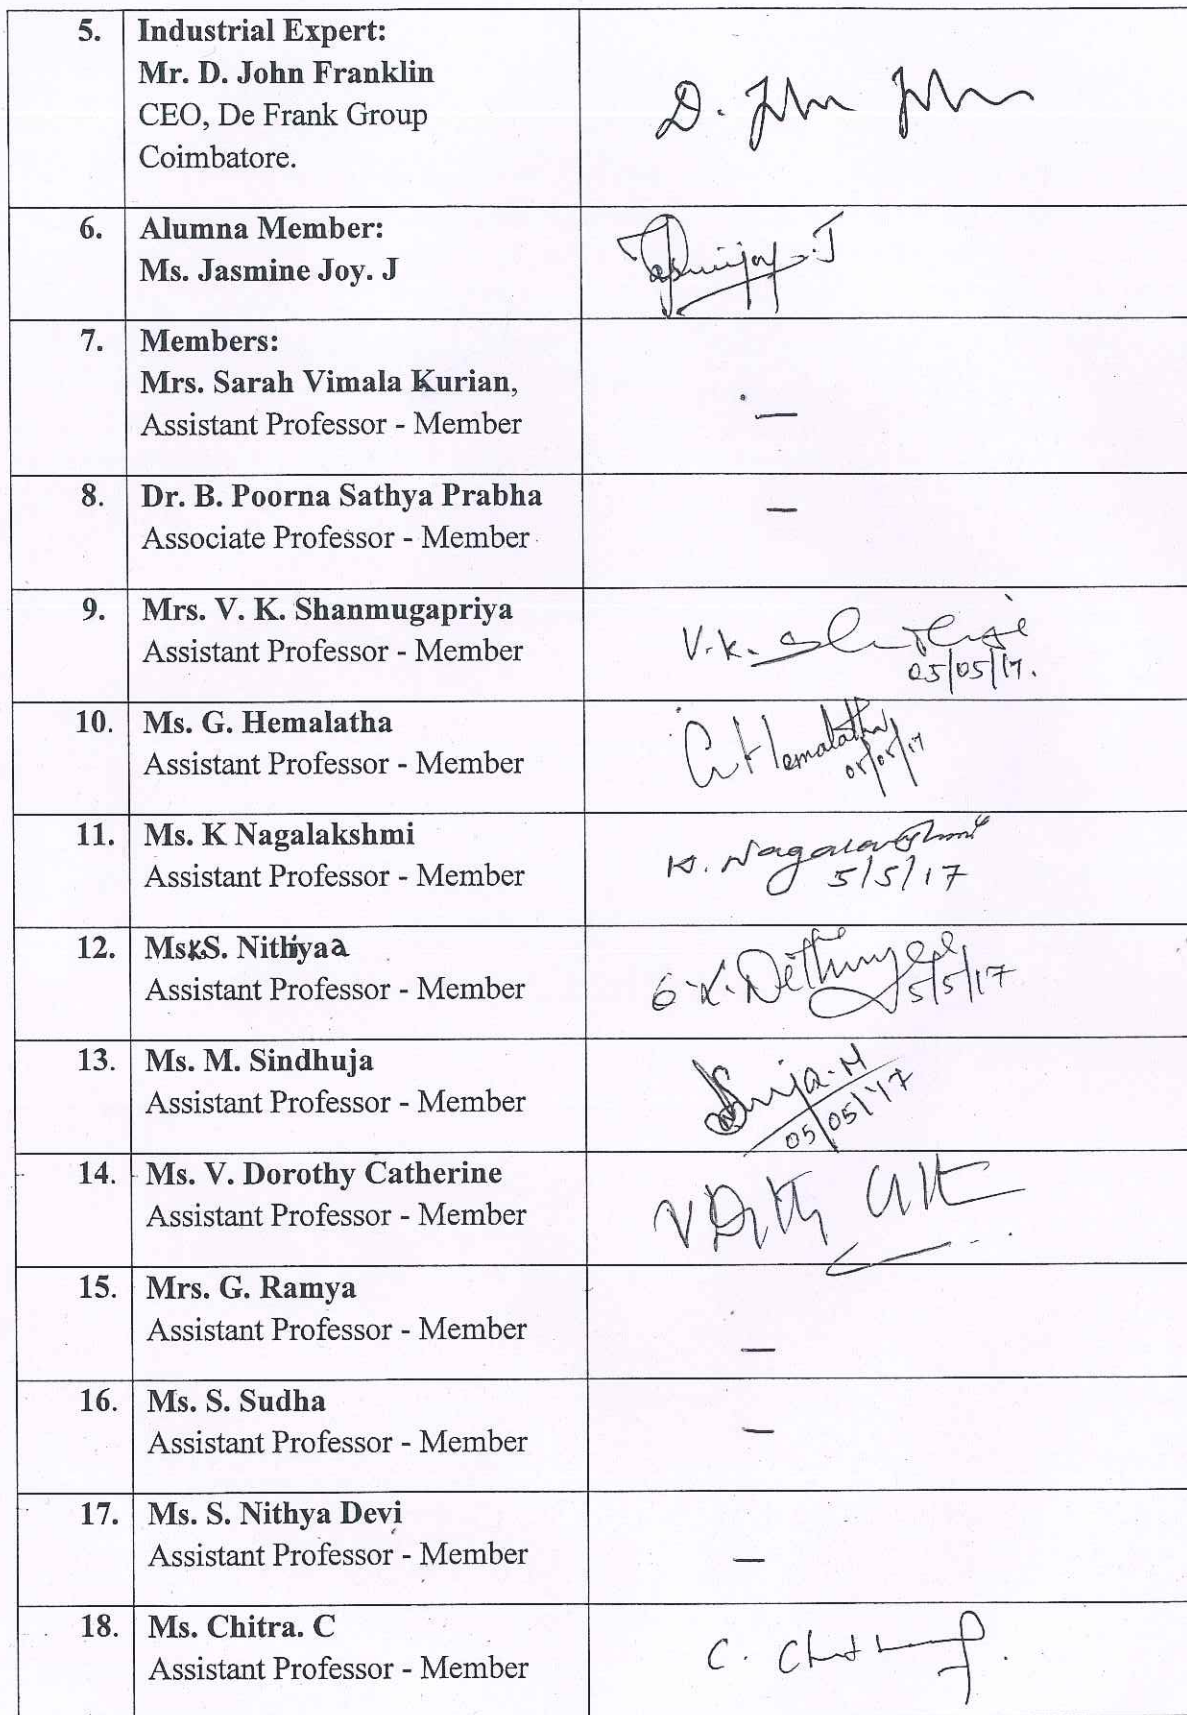 5. Industrial Expert:
Mr. D. John Franklin
CEO, De Frank Group
Coimbatore.
D. John
6. Alumna Member:
Ms. Jasmine Joy. J
7. Members:
Mrs. Sarah Vimala Kurian,
Assistant Professor - Member
—
8. Dr. B. Poorna Sathya Prabha
Associate Professor - Member
—
9. Mrs. V. K. Shanmugapriya
Assistant Professor - Member
V.K.
05/05/17.
10. Ms. G. Hemalatha
Assistant Professor - Member
G Hemalatha
05/05/17
11. Ms. K Nagalakshmi
Assistant Professor - Member
K. Nagalakshmi
5/5/17
12. Ms. K S. Nithiyaa
Assistant Professor - Member
5/5/17
13. Ms. M. Sindhuja
Assistant Professor - Member
05/05/17
14. Ms. V. Dorothy Catherine
Assistant Professor - Member
15. Mrs. G. Ramya
Assistant Professor - Member
—
16. Ms. S. Sudha
Assistant Professor - Member
—
17. Ms. S. Nithya Devi
Assistant Professor - Member
—
18. Ms. Chitra. C
Assistant Professor - Member
C.